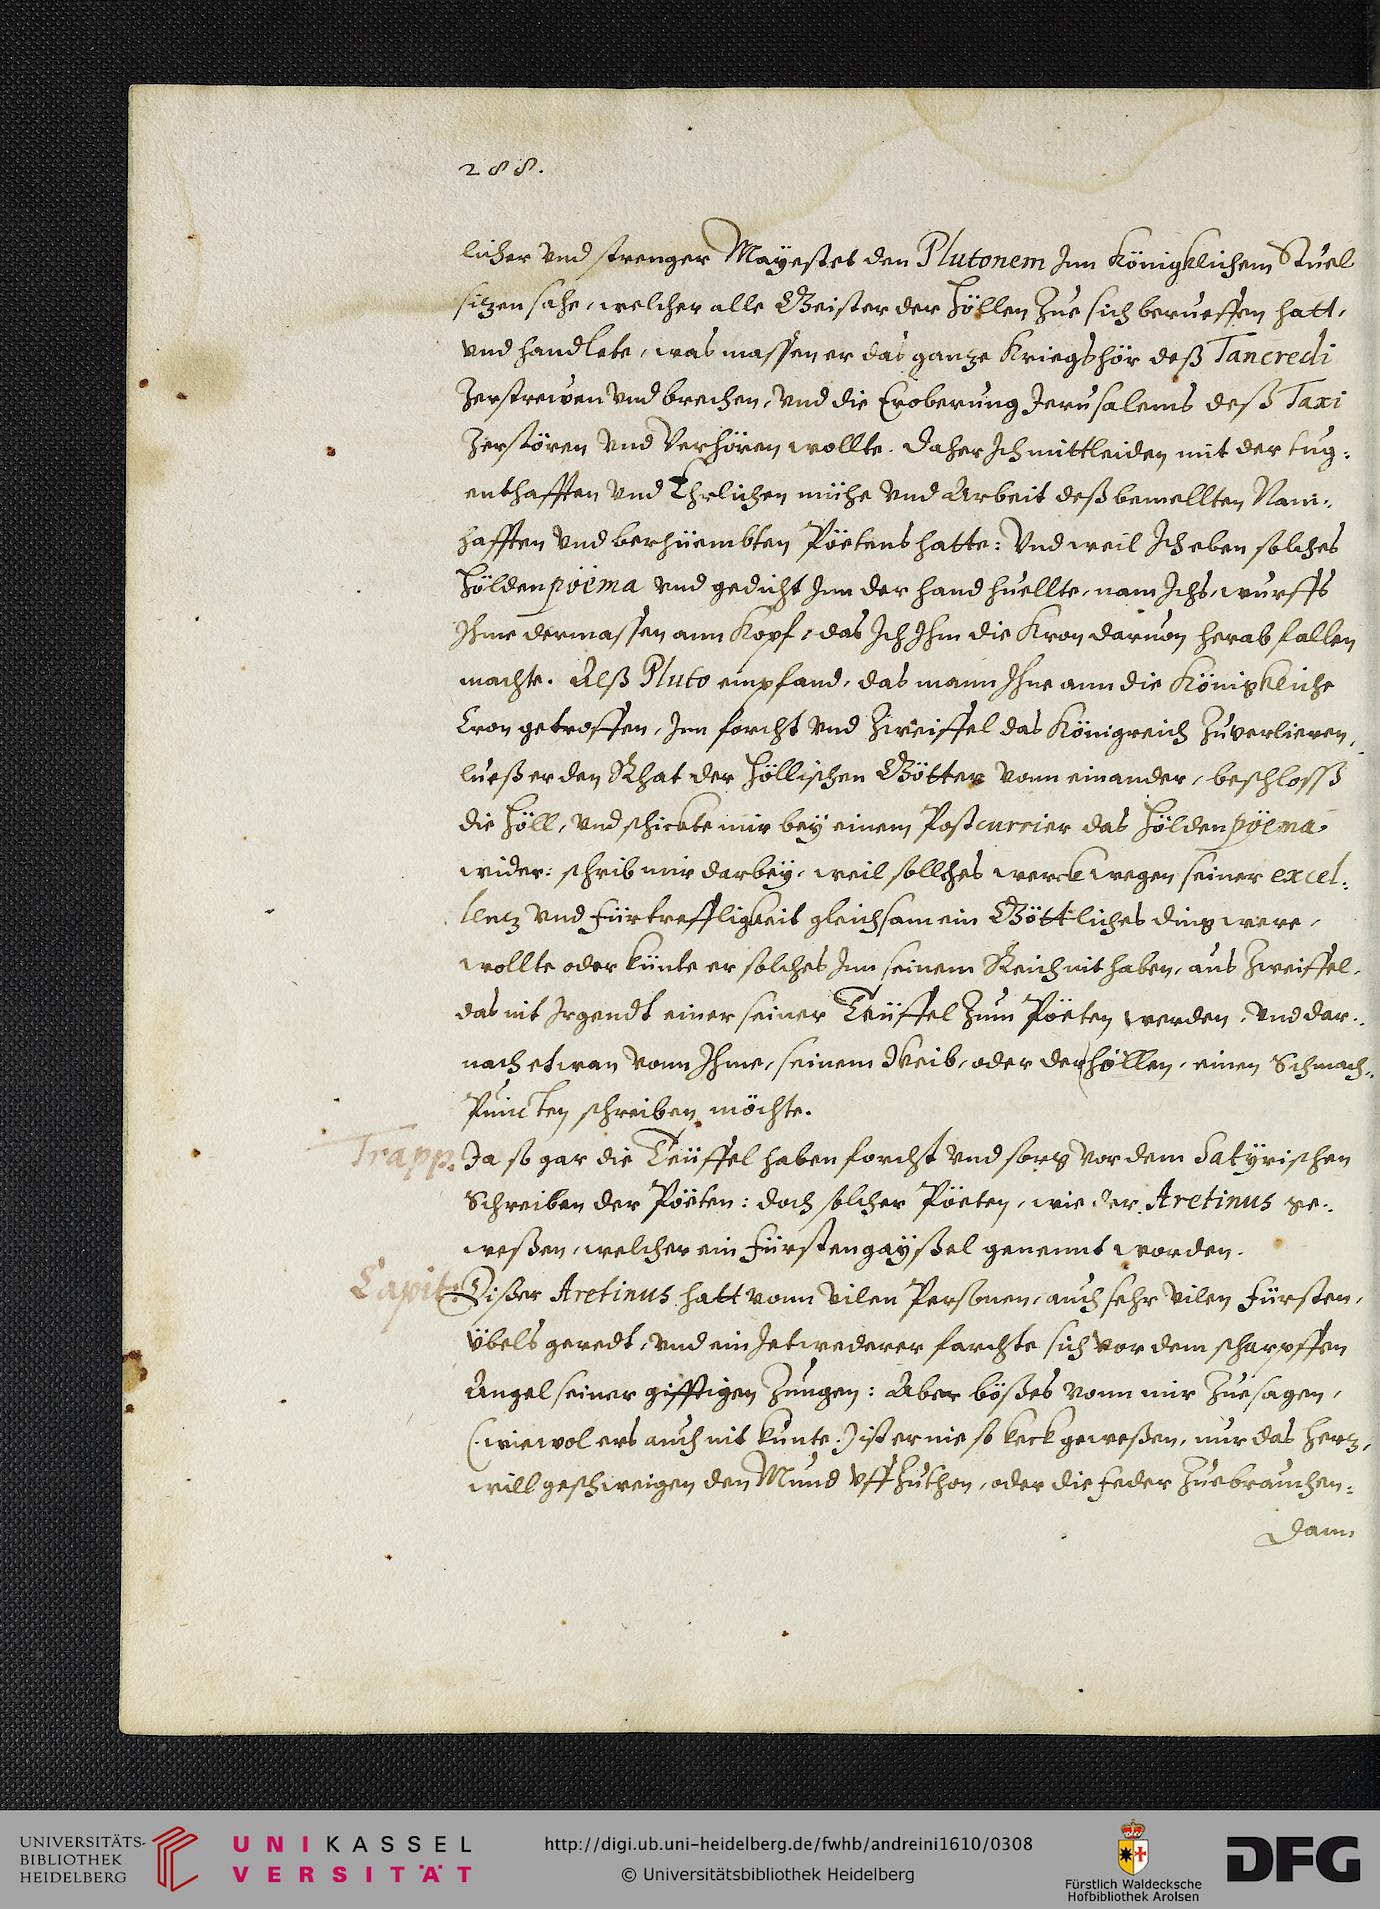 288.
licher vnd strenger Mayestet den Plutonem Inn Königklichem Stuel
sitzen sahe, welcher alle Geister der Höllen Zue sich berueffen hatt,
vnd handlete, was massen er das gantze Kriegshör deß Tancredi
Zerstrewen vnd brechen, vnd die Eroberung Jerusalems deß Taxi
Zerstören vnd Verhören wollte. Daher Ich mittleiden mit der tug:
enthafften vnd Ehrlichen mühe vnd Arbeit deß bemellten Nam:
hafften vnd berhüembten Pöetens hatte: Vnd weil Ich eben solches
Höldenpöema vnd gedicht Inn der hand huellte, nam Ichs, wurffs
Ihme dermassen ann Kopf, das Ich Ihm die Kron daruon herab fallen
machte. Alß Pluto empfand, das mann Ihne ann die Königkliche
Cron getroffen, Inn forcht vnd Zweiffel das Königreich Zuverlieren,
lueß er den Rhat der Höllischen Götter vonn einander, beschlosß
die Höll, vnd schickte mir bey einem Postcurrier das Höldenpöema
wider: schrib mir darbey, weil sollches werck wegen seiner excel:
lentz vnd Fürtreffligkeit gleichsam ein Göttliches ding were,
wollte oder künte er solches Inn seinem Reich nit haben, aus Zweiffel,
das nit Irgendt einer seiner Teüffel Zum Pöeten werden, vnd dar:
nach etwan vonn Ihme, seinem Weib, oder der Höllen, einen Schmach:
Puncten schreiben möchte.
Trapp. Ja so gar die Teüffel haben forcht vnd sorg vor dem Satyrischen
Schreiben der Pöeten: doch solcher Pöeten, wie der Aretinus ge:
weßen, welcher ein Fürstengayßel genennt worden.
Capit: Dißer Aretinus hatt vonn vilen Personen, auch sehr vilen Fürsten,
übels geredt, vnd ein Jetwederer farchte sich vor dem scharpffen
Angel seiner gifftigen Zungen: Aber bößes vonn mir Zuesagen,
(: wiewol ers auch nit kunte :) ist er nie so keck geweßen, nur das Hertz,
will geschweigen den Mund vffZuthon, oder die Feder Zuebrauchen:
Dann
UNIVERSITÄTS-
BIBLIOTHEK
HEIDELBERG
UNIKASSEL
VERSITÄT
http://digi.ub.uni-heidelberg.de/fwhb/andreini1610/0308
© Universitätsbibliothek Heidelberg
Fürstlich Waldecksche
Hofbibliothek Arolsen
DFG